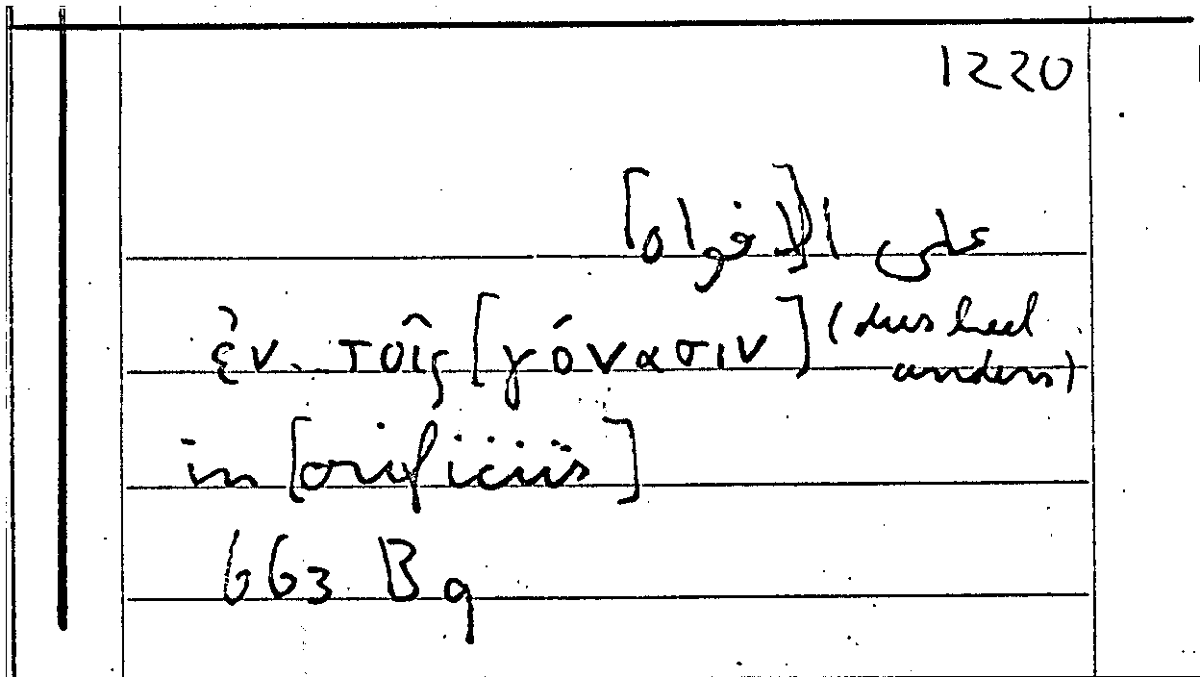 1220
على ا[لافواه]
ἐν τοῖς [γόνασιν] (dus heel anders)
in [orificiis]
663 B9